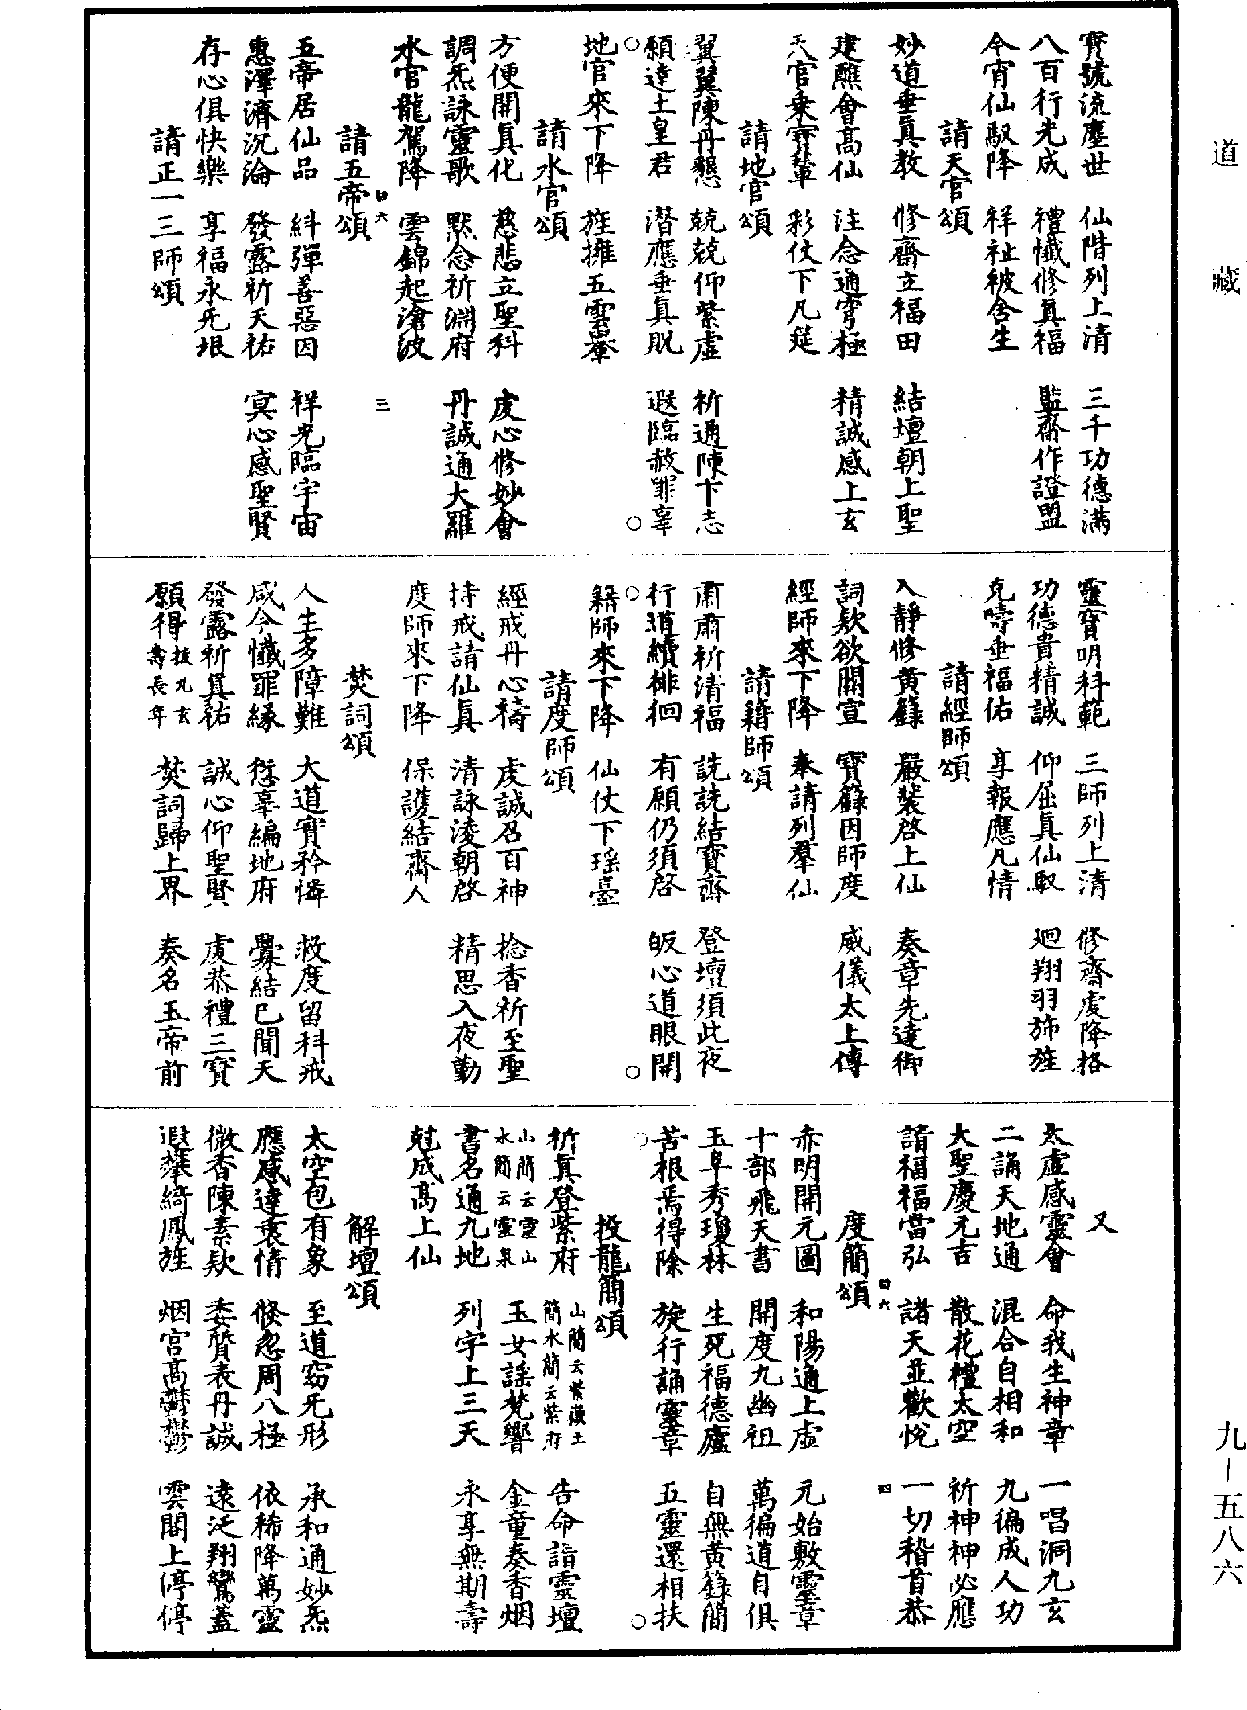 寶號流塵世　仙階列上清　三千功德滿
八百行光成　禮懺修真福　監齋作證盟
今宵仙馭降　祥祉被含生
請天官頌
妙道垂真教　修齋立福田　結壇朝上聖
建醮會高仙　注念通穹極　精誠感上玄
天官乘寶輦　彩仗下凡筵
請地官頌
翼翼陳丹懇　兢兢仰紫虛　祈通陳下志
願達土皇君　潛應垂真貺　遐臨赦罪辜
地官來下降　旌擁五雲轝
請水官頌
方便開真化　慈悲立聖科　虔心修妙會
調炁詠靈歌　默念祈淵府　丹誠通大羅
水官龍駕降　雲錦起滄波
四六　三
請五帝頌
五帝居仙品　糾彈善惡因　祥光臨宇宙
惠澤濟沉淪　發露祈天祐　冥心感聖賢
存心俱快樂　享福永无垠
請正一三師頌
靈寶明科範　三師列上清　修齋虔降格
功德貴精誠　仰屈真仙馭　迴翔羽斾旌
克疇垂福佑　享報應凡情
請經師頌
入靜修黃籙　嚴裝啓上仙　奏章先達御
詞款欲關宣　寶籙因師度　威儀太上傳
經師來下降　奉請列羣仙
請籍師頌
肅肅祈清福　詵詵結寶齋　登壇須此夜
行道續徘徊　有願仍須啓　皈心道眼開
籍師來下降　仙仗下瑤臺
請度師頌
經戒丹心禱　虔誠召百神　捻香祈至聖
持戒請仙真　清詠淩朝啓　精思入夜勤
度師來下降　保護結齋人
焚詞頌
人生多障難　大道寶矜憐　救度留科戒
咸今懺罪緣　愆辜編地府　釁結已聞天
發露祈真祐　誠心仰聖賢　虔恭禮三寶
願得拔九玄壽長年　焚詞歸上界　奏名玉帝前
又
太虛感靈會　命我生神章　一唱洞九玄
二誦天地通　混合自相和　九徧成人功
大聖慶元吉　散花禮太空　祈神神必應
請福福當弘　諸天並歡悅　一切稽首恭
四六　四
度簡頌
赤明開元圖　和陽通上虛　元始敷靈章
十部飛天書　開度九幽祖　萬徧道自俱
玉阜秀瓊林　生死福德廬　自無黃籙簡
苦根焉得除　旋行誦靈章　五靈還相扶
投龍簡頌
祈真登紫府山簡云靈山水簡云靈泉　山簡云紫嶽土簡水簡云紫府　告命詣靈壇
玉女謠梵響　金童奏香烟
書名通九地　列字上三天　永享無期壽
尅成高上仙
解壇頌
太空包有象　至道窈无形　承和通妙炁
應感達衷情　倏忽周八極　依稀降萬靈
微香陳素款　委質表丹誠　遠泛翔鸞蓋
遐搴綺鳳旌　烟宮高鬱鬱　雲閣上停停
道藏
九－五八六